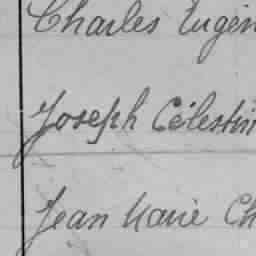 Charles Eugèn
Joseph Célestin
Jean Marie Ch